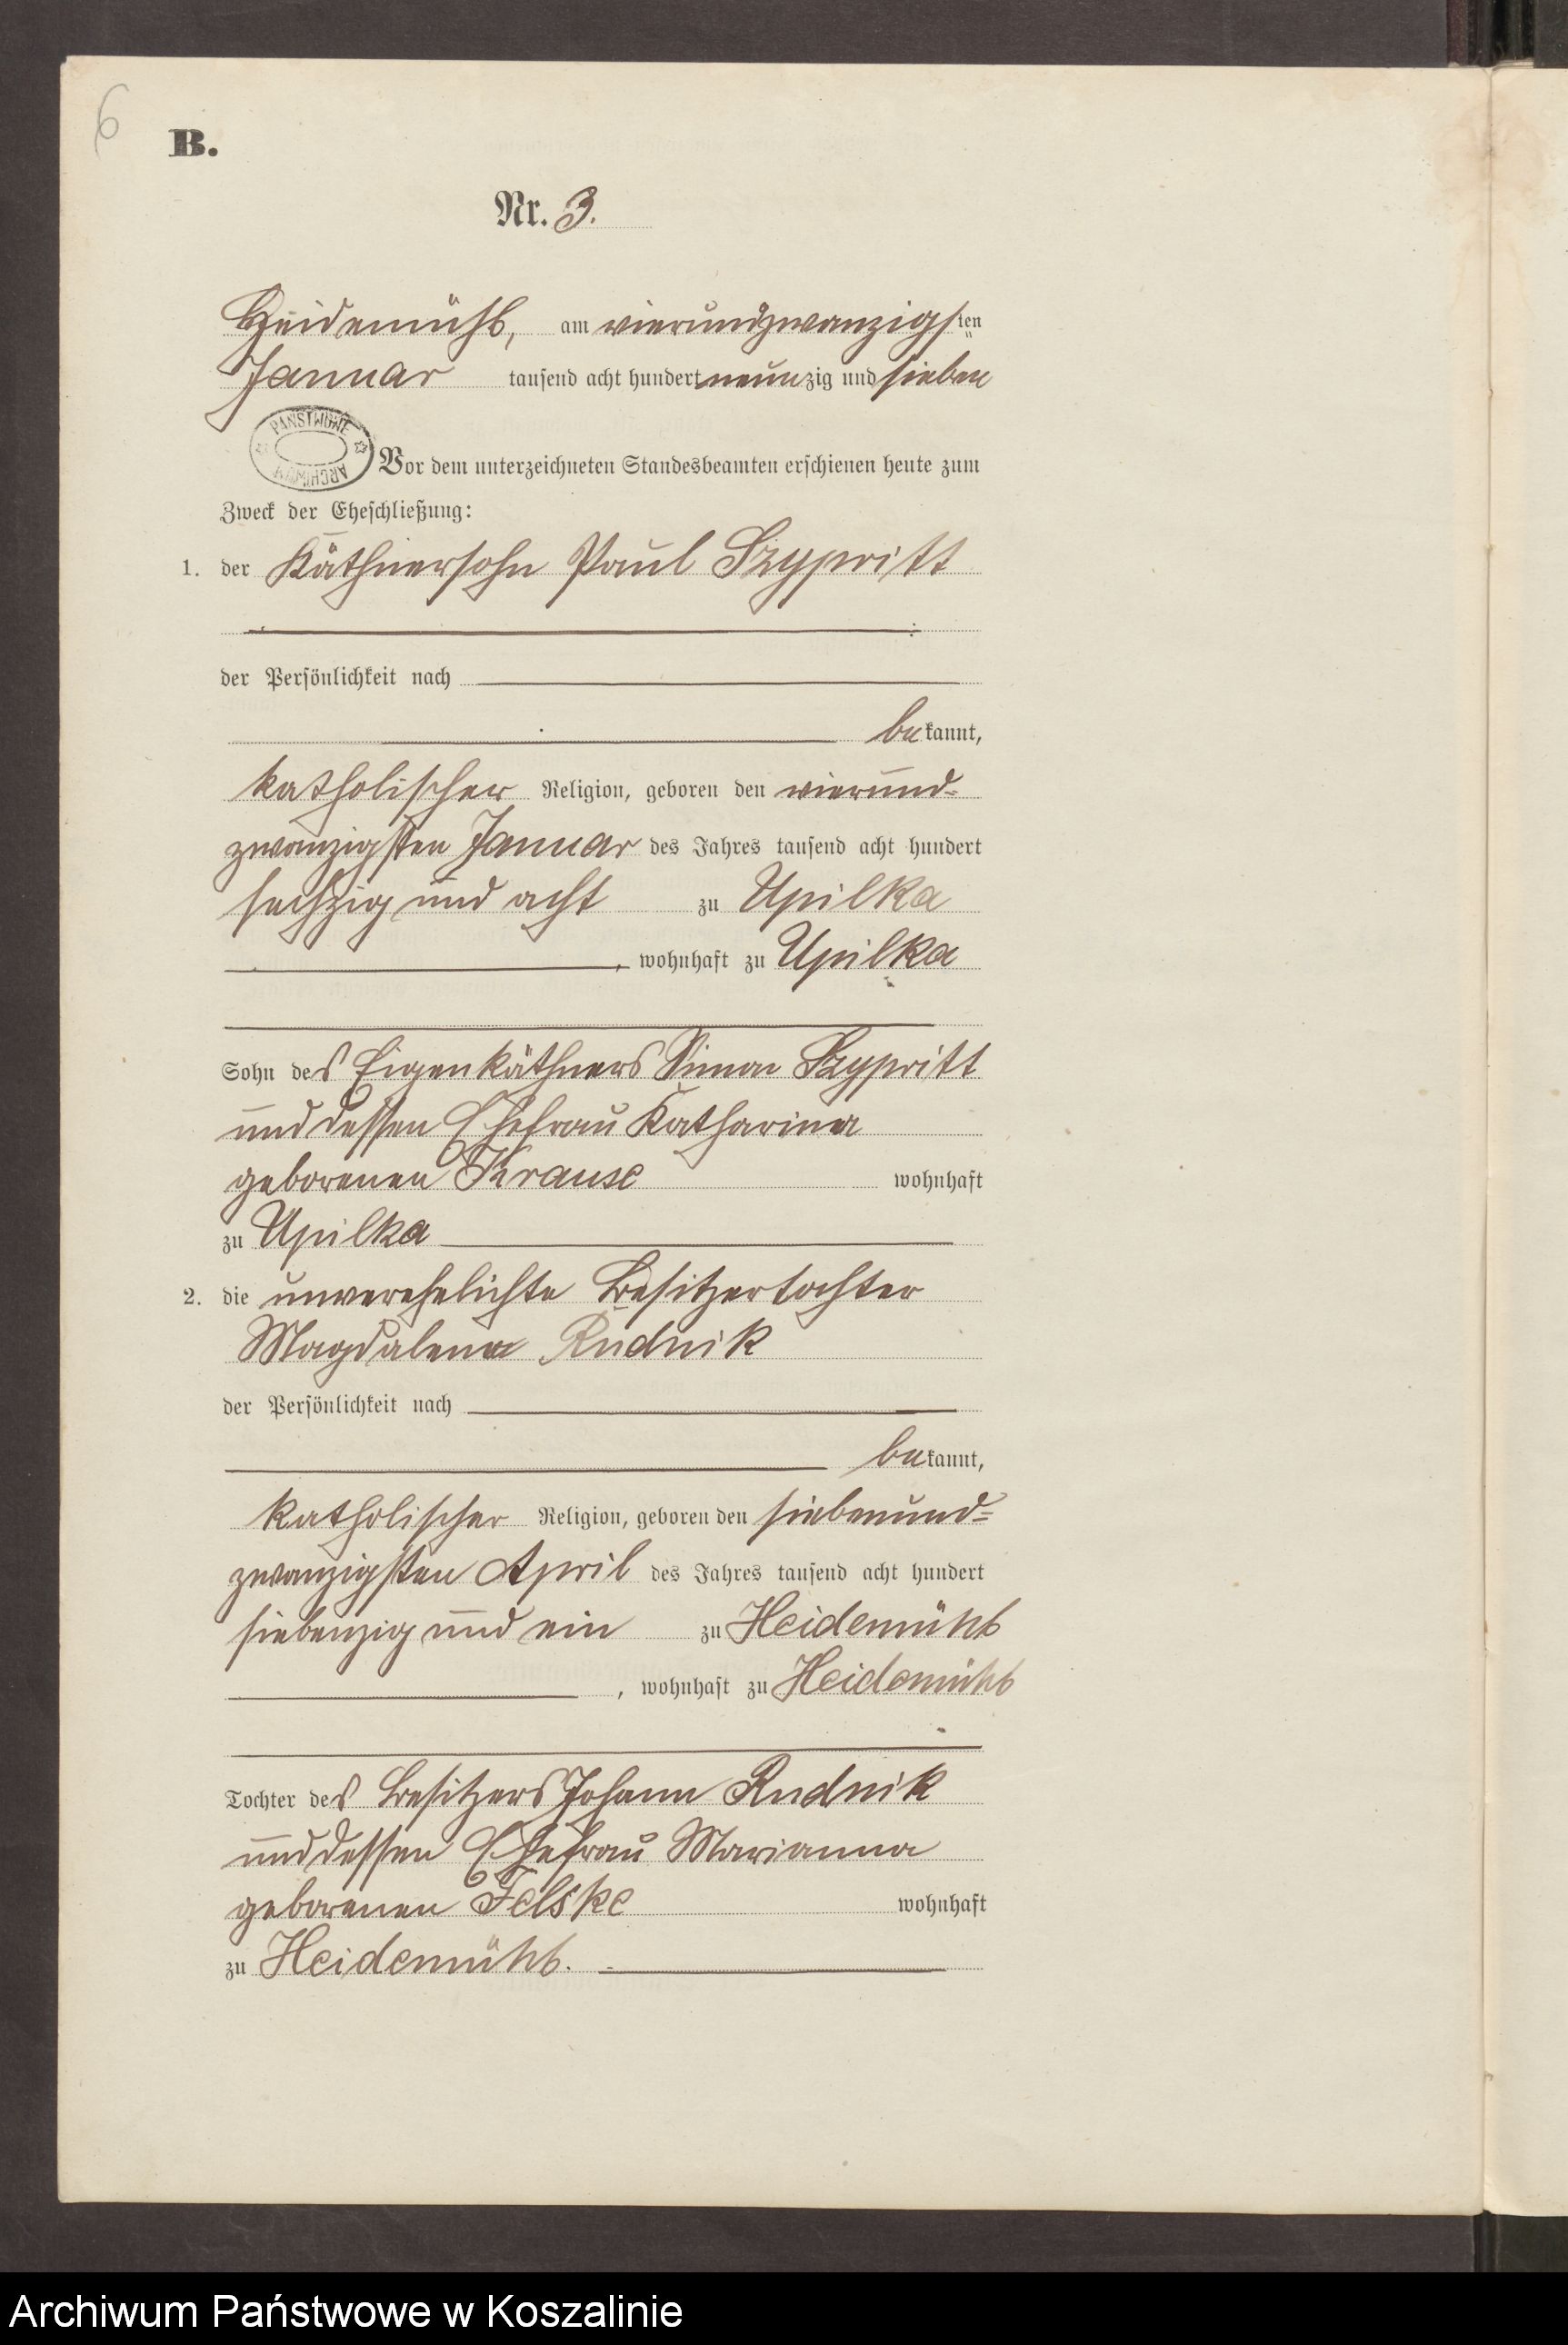 6
B.
Nr. 3.
Heidemühl, am vierundzwanzigsten
Januar tausend acht hundert neunzig und sieben
PAŃSTWOWE ARCHIWUM
Vor dem unterzeichneten Standesbeamten erschienen heute zum
Zweck der Eheschließung:
1. der Käthnersohn Paul Szypritt
der Persönlichkeit nach
bekannt,
katholischer Religion, geboren den vierund-
zwanzigsten Januar des Jahres tausend acht hundert
sechzig und acht zu Upilka
, wohnhaft zu Upilka
Sohn des Eigenkäthners Simon Szypritt
und dessen Ehefrau Katharina
geborenen Krause wohnhaft
zu Upilka
2. die unverehelichte Besitzertochter
Magdalena Rudnik
der Persönlichkeit nach
bekannt,
katholischer Religion, geboren den siebenund-
zwanzigsten April des Jahres tausend acht hundert
siebenzig und ein zu Heidemühl
, wohnhaft zu Heidemühl
Tochter des Besitzers Johann Rudnik
und dessen Ehefrau Marianna
geborenen Felske wohnhaft
zu Heidemühl.
Archiwum Państwowe w Koszalinie